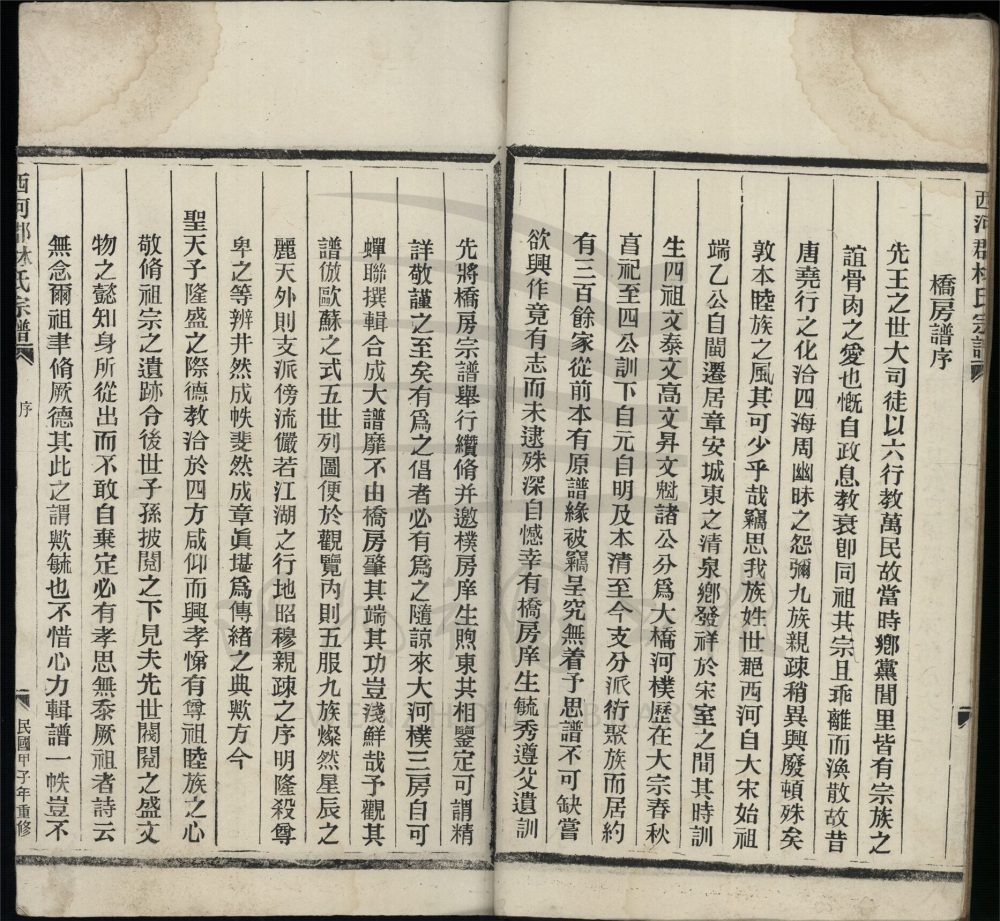 西河郡林氏宗譜
橋房譜序
先王之世大司徒以六行教萬民故當時鄉黨閭里皆有宗族之
誼骨肉之愛也慨自政息教衰卽同祖其宗且乖離而渙散故昔
唐堯行之化洽四海周幽昧之怨彌九族親疎稍異興廢頓殊矣
敦本睦族之風其可少乎哉竊思我族姓世郡西河自大宋始祖
端乙公自閩遷居章安城東之清泉鄉發祥於宋室之間其時訓
生四祖文泰文高文昇文魁諸公分爲大橋河樸歷在大宗春秋
亯祀至四公訓下自元自明及本清至今支分派衍聚族而居約
有三百餘家從前本有原譜緣被竊呈究無着予思譜不可缺嘗
欲興作竟有志而未逮殊深自憾幸有橋房庠生毓秀遵父遺訓
先將橋房宗譜舉行纘脩并邀樸房庠生煦東其相鑒定可謂精
詳敬謹之至矣有爲之倡者必有爲之隨諒來大河樸三房自可
蟬聯撰輯合成大譜靡不由橋房肇其端其功豈淺鮮哉予觀其
譜倣歐蘇之式五世列圖便於觀覽內則五服九族燦然星辰之
麗天外則支派傍流儼若江湖之行地昭穆親疎之序明隆殺尊
卑之等辨井然成帙斐然成章眞堪爲傳緒之典歟方今
聖天子隆盛之際德教洽於四方咸仰而興孝悌有尊祖睦族之心
敬脩祖宗之遺跡令後世子孫披閱之下見夫先世閥閱之盛文
物之懿知身所從出而不敢自棄定必有孝思無忝厥祖者詩云
無念爾祖聿脩厥德其此之謂歟毓也不惜心力輯譜一帙豈不
西河郡林氏宗譜
序
民國甲子年重修